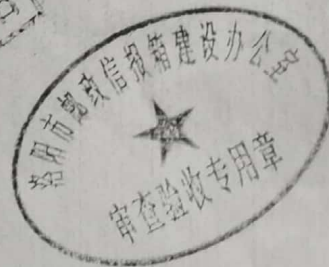 洛阳市邮政信报箱建设办公室
审查验收专用章